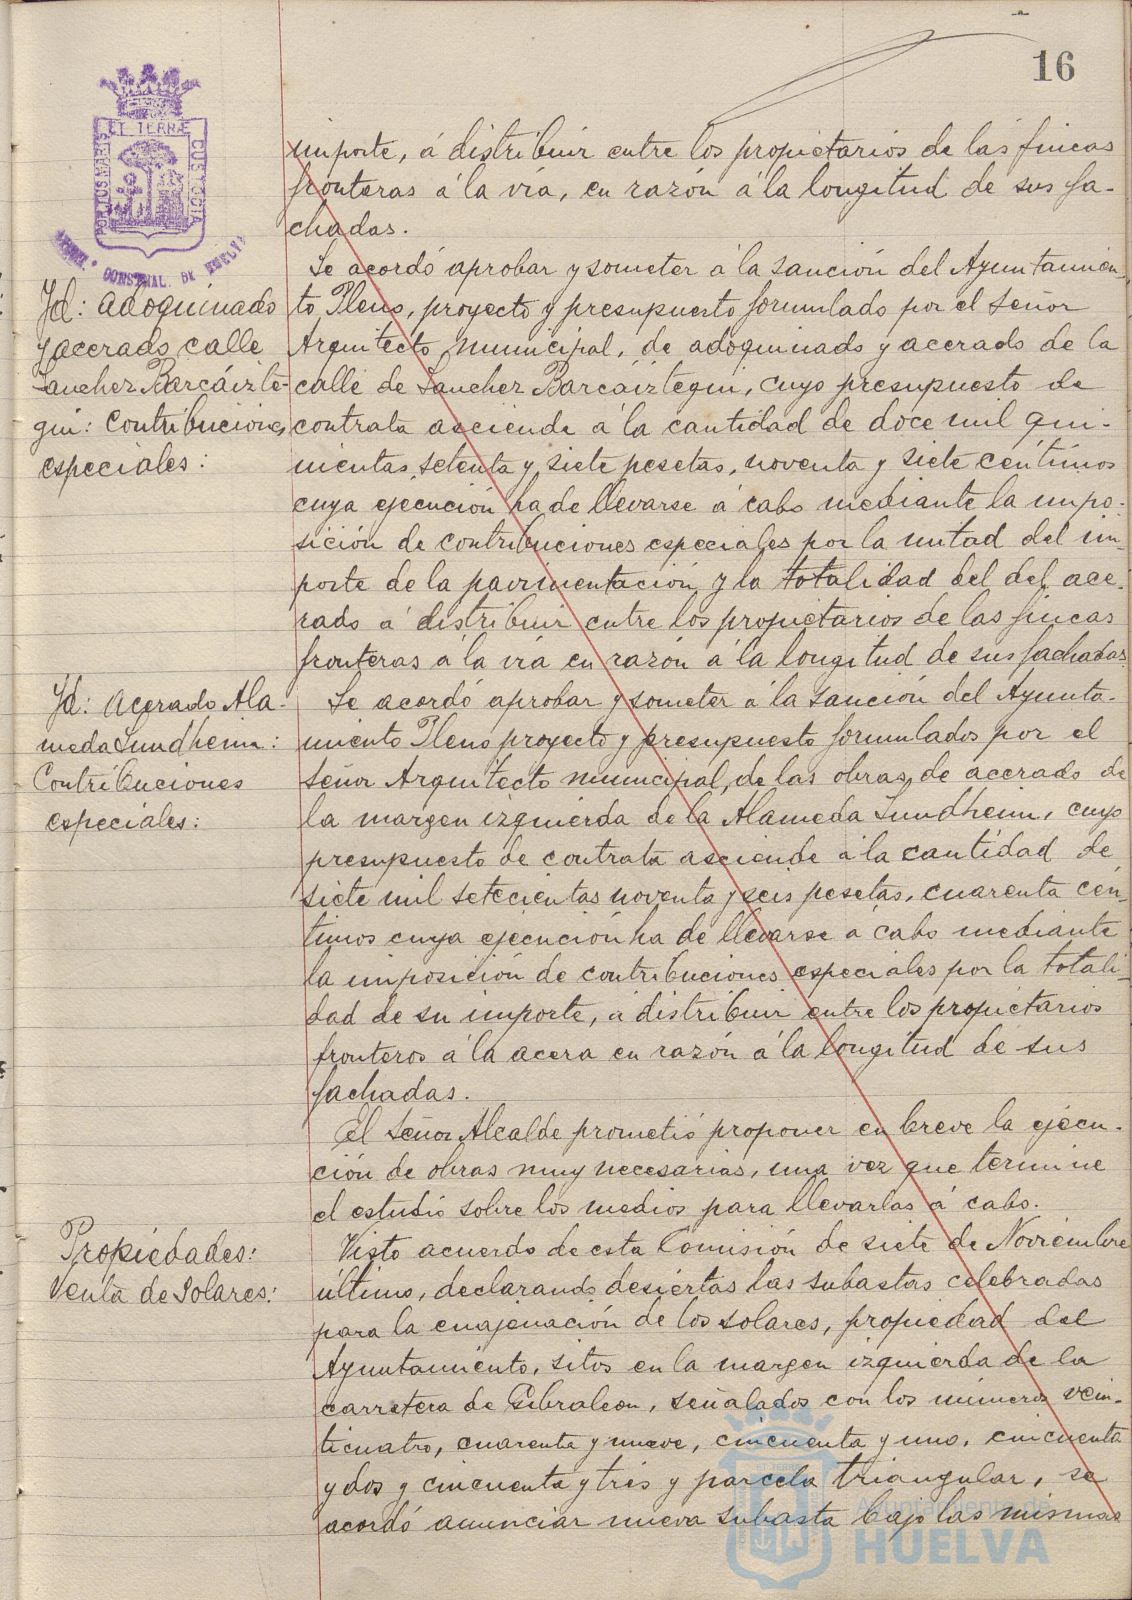 16
PORTUS MARIS
ET TERRÆ
CUSTODIA
importe, á distribuir entre los propietarios de las fincas
fronteras á la vía, en razón á la longitud de sus fa-
chadas.
Id: adoquinado
y acerado calle
Sanchez Barcáizte-
gui: Contribuciones
especiales:
Se acordó aprobar y someter á la sanción del Ayuntamien-
to Pleno, proyecto y presupuesto formulado por el señor
Arquitecto municipal, de adoquinado y acerado de la
calle de Sanchez Barcáiztegui, cuyo presupuesto de
contrata asciende á la cantidad de doce mil qui-
nientas setenta y siete pesetas, noventa y siete céntimos
cuya ejecución ha de llevarse á cabo mediante la impo-
sición de contribuciones especiales por la mitad del im-
porte de la pavimentación y la totalidad del del ace-
rado á distribuir entre los propietarios de las fincas
fronteras á la vía en razón á la longitud de sus fachadas.
Id: Acerado Ala-
meda Sundheim:
Contribuciones
especiales:
Se acordó aprobar y someter á la sanción del Ayunta-
miento Pleno proyecto y presupuesto formulados por el
señor Arquitecto municipal, de las obras de acerado de
la margen izquierda de la Alameda Sundheim, cuyo
presupuesto de contrata asciende á la cantidad de
siete mil setecientas noventa y seis pesetas, cuarenta cén-
timos cuya ejecución ha de llevarse á cabo mediante
la imposición de contribuciones especiales por la totali-
dad de su importe, á distribuir entre los propietarios
fronteros á la acera en razón á la longitud de sus
fachadas.
El Señor Alcalde prometió proponer en breve la ejecu-
ción de obras muy necesarias, una vez que termine
el estudio sobre los medios para llevarlas á cabo.
Propiedades:
Venta de Solares:
Visto acuerdo de esta Comisión de siete de Noviembre
último, declarando desiertas las subastas celebradas
para la enajenación de los solares, propiedad del
Ayuntamiento, sitos en la margen izquierda de la
carretera de Gibraleon, señalados con los números vein-
ticuatro, cuarenta y nueve, cincuenta y uno, cincuenta
y dos y cincuenta y tres y parcela triangular, se
acordó anunciar nueva subasta bajo las mismas
Ayuntamiento de
HUELVA